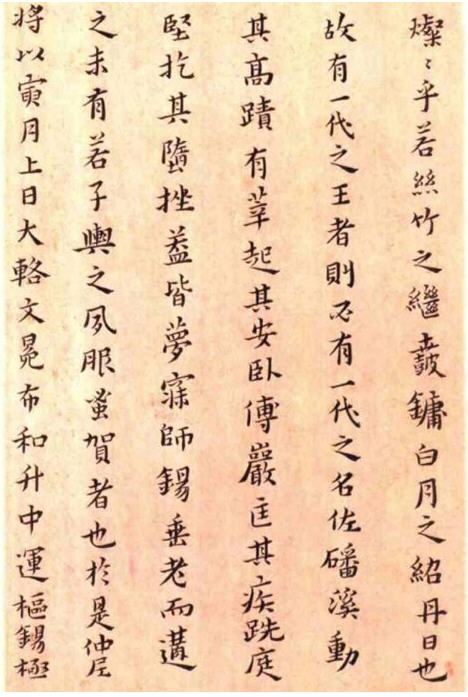 燦〻乎若絲竹之繼鼖鏞白月之紹丹日也
故有一代之王者則必有一代之名佐磻溪動
其高蹟有莘起其安臥傅巖匡其疾跣庭
堅扢其墮挫蓋皆夢寐師錫垂老而遘
之未有若子輿之夙服蚤賀者也於是仲尼
將以寅月上日大輅文冕布和升中運樞錫極